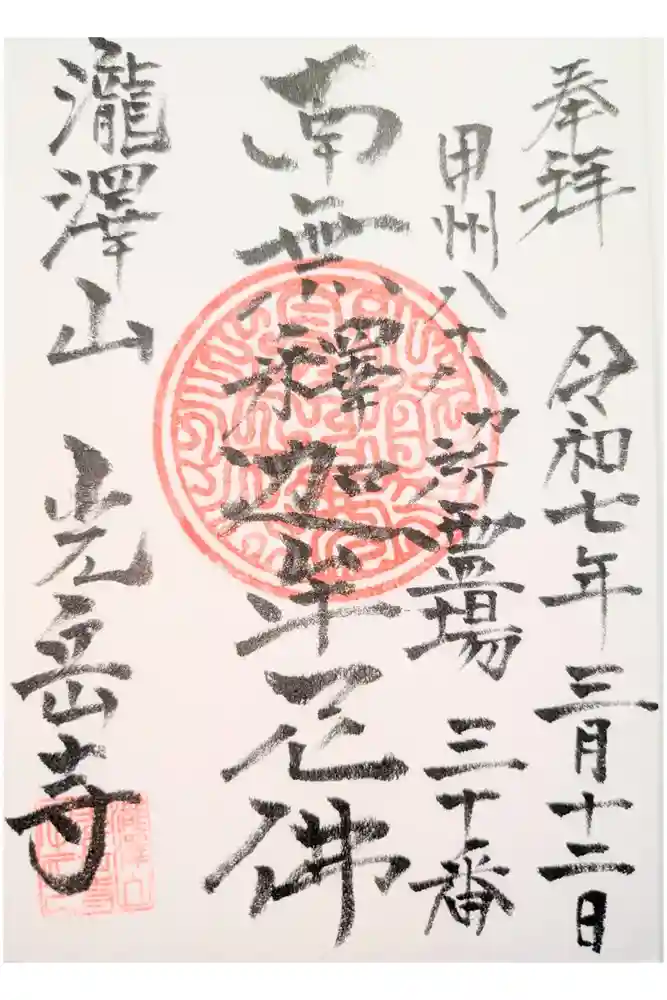 奉拝
令和七年三月十二日
甲州八十八ヶ所霊場 三十番
南無釋迦牟尼佛
瀧澤山 光岳寺